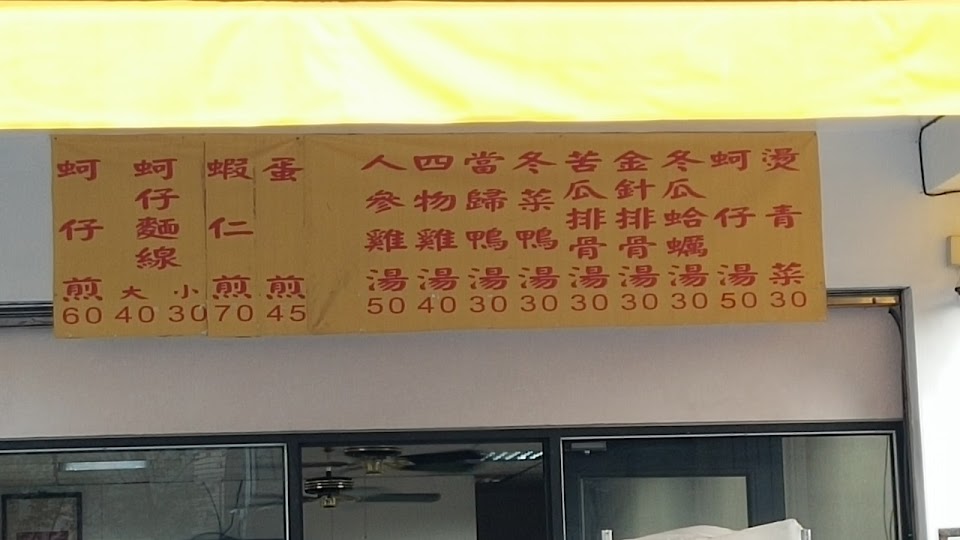 蚵仔煎 60
蚵仔麵線 大 40 小 30
蝦仁煎 70
蛋煎 45
人參雞湯 50
四物雞湯 40
當歸鴨湯 30
冬菜鴨湯 30
苦瓜排骨湯 30
金針排骨湯 30
冬瓜蛤蠣湯 30
蚵仔湯 50
燙青菜 30